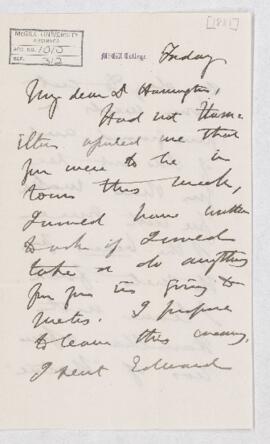 [1881]
McGILL UNIVERSITY
ARCHIVES
ACC. NO. 1010
REF. 312
McGill College
Friday
My dear Dr Harrington,
Had not Ham-
ilton assured me that
you were to be in
town this week,
I would have written
to ask if I could
take or do anything
for you in going to
Metis. I propose
to leave this evening.
I sent Edward